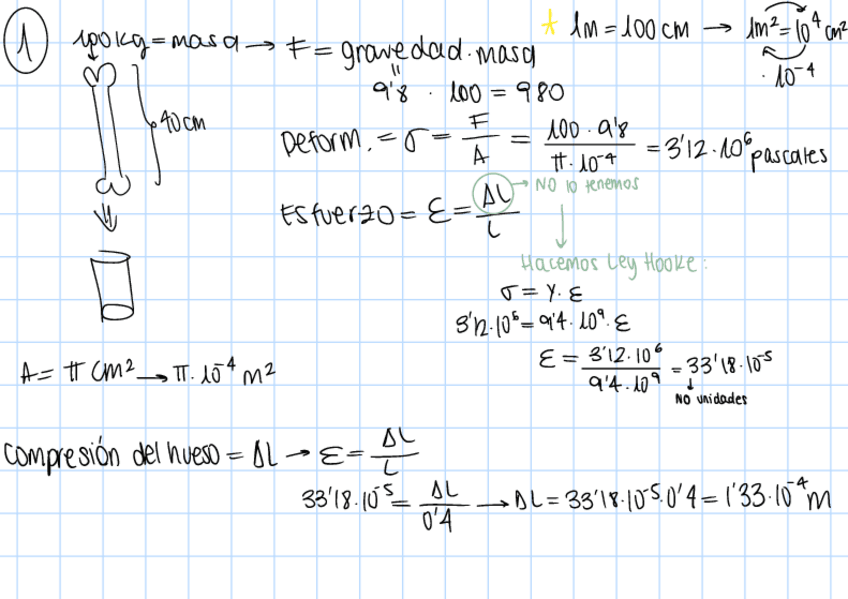 1
100kg = masa → F = gravedad · masa
9'8 · 100 = 980
* 1m = 100 cm → 1m² = 10⁴ cm²
· 10⁻⁴
40cm
Deform. = σ = F/A = 100 · 9'8 / π · 10⁻⁴ = 3'12 · 10⁶ pascales
Esfuerzo = ε = ΔL/L
→ NO lo tenemos
Hacemos Ley Hooke:
σ = Y · ε
3'12 · 10⁶ = 9'4 · 10⁹ · ε
ε = 3'12 · 10⁶ / 9'4 · 10⁹ = 33'18 · 10⁻⁵
NO unidades
A = π cm² → π · 10⁻⁴ m²
compresión del hueso = ΔL → ε = ΔL/L
33'18 · 10⁻⁵ = ΔL/0'4 → ΔL = 33'18 · 10⁻⁵ · 0'4 = 1'33 · 10⁻⁴ m